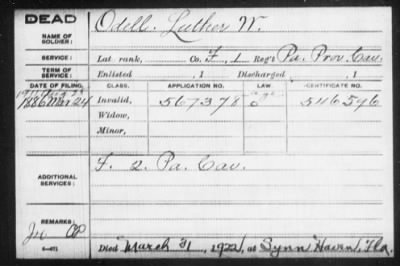 DEAD
NAME OF SOLDIER:
Odell, Luther W.
SERVICE:
Lat rank, Co. F, 1 Reg't Pa. Prov. Cav.
TERM OF SERVICE:
Enlisted , 1 Discharged , 1
DATE OF FILING. CLASS. APPLICATION NO. LAW. CERTIFICATE NO.
1886 Mar 24 Invalid, 567378 546596
Widow,
Minor,
ADDITIONAL SERVICES:
F. 2. Pa. Cav.
REMARKS:
Died March 31, 1922, at Lynn Haven, Fla.